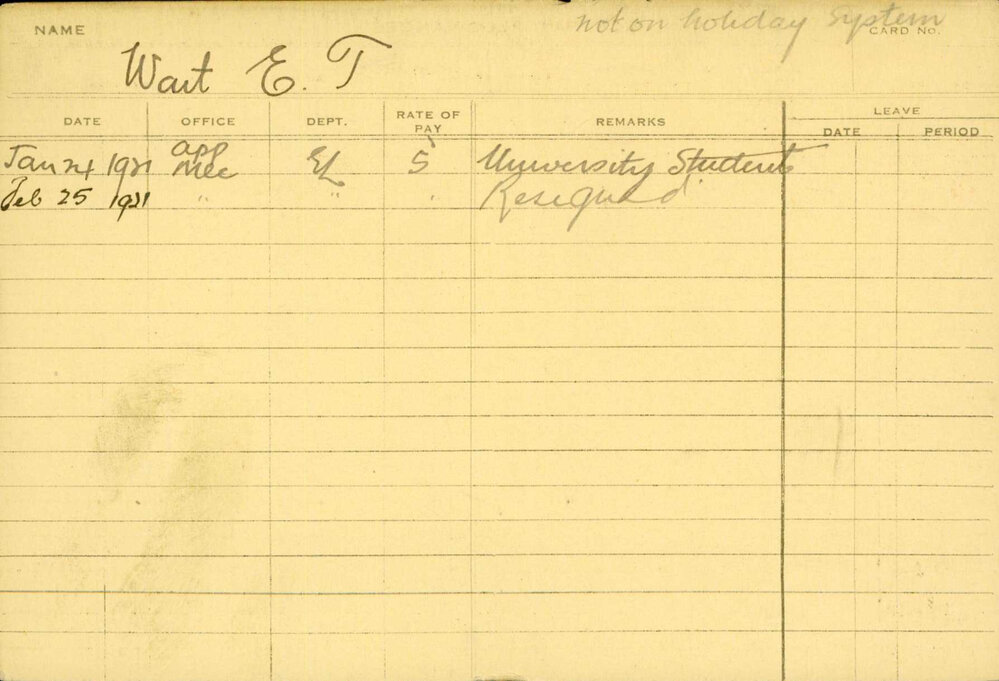 not on holiday System
NAME
CARD NO.
Wait E. T
DATE OFFICE DEPT. RATE OF PAY REMARKS LEAVE
DATE PERIOD
Jan 24 1921 app Mec El 5 University Student
Feb 25 1921 " " " Resigned